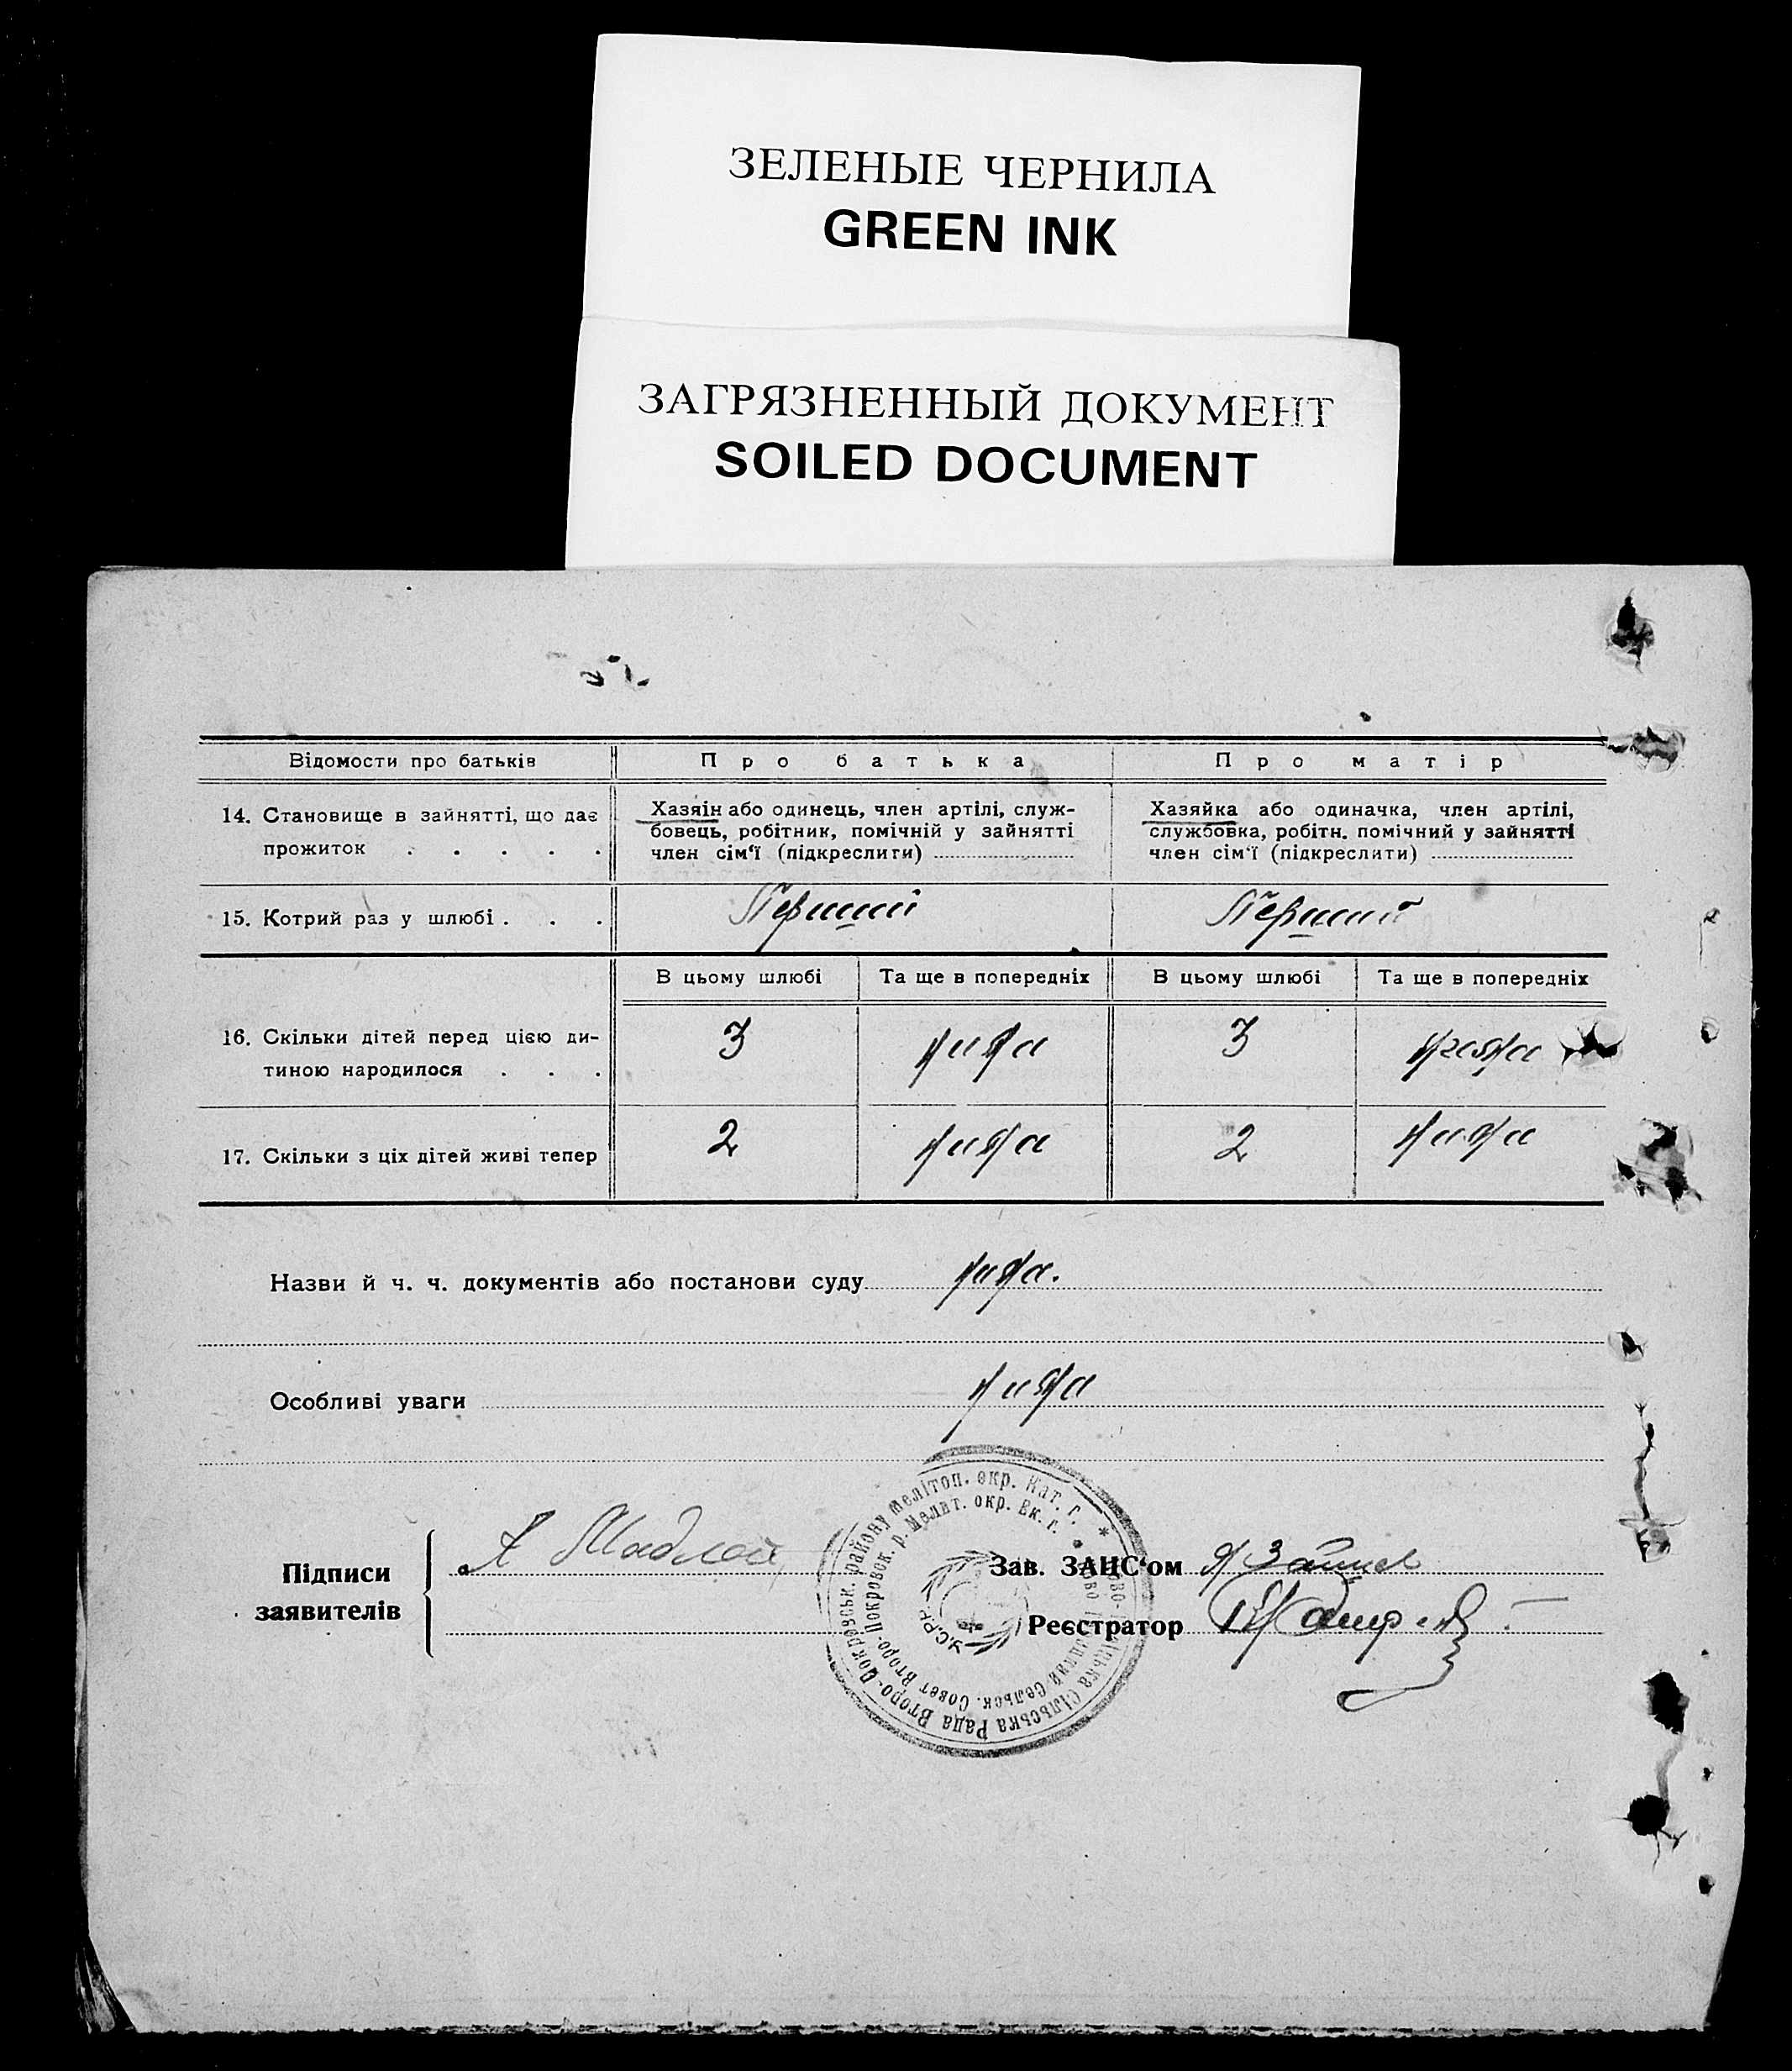 ЗЕЛЕНЫЕ ЧЕРНИЛА
GREEN INK
ЗАГРЯЗНЕННЫЙ ДОКУМЕНТ
SOILED DOCUMENT
Відомости про батьків
Про батька
Про матір
14. Становище в зайнятті, що дає
прожиток . . . . .
Хазяін або одинець, член артілі, служ-
бовець, робітник, помічній у зайнятті
член сім'ї (підкреслити)
Хазяйка або одиначка, член артілі,
службовка, робітн. помічний у зайнятті
член сім'ї (підкреслити)
15. Котрий раз у шлюбі . . .
Перший
Перший
В цьому шлюбі
Та ще в попередніх
В цьому шлюбі
Та ще в попередніх
16. Скільки дітей перед цією ди-
тиною народилося . . .
3
3
17. Скільки з ціх дітей живі тепер
2
2
Назви й ч. ч. документів або постанови суду
Особливі уваги
Підписи
заявителів
Зав. ЗАЦС'ом
Реєстратор
Сільська Рада Второ-Покровськ. району Мелітоп. окр. Кат. г. *
Сельск. Совет Второ-Покровск. р. Мелит. окр. Ек. г.
У.С.Р.Р.